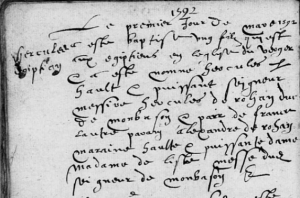 1592
Le premier Jour de mars 1592
hercules
a este baptise ung filz quy est
aux egiptiens en leglise de
et a este nomme hercules
hault et puissant seigneur
messire hercules de rohan duc
de monbason et parr de france
lautre parain alexandre de rohan
maraine haulte et puissante dame
madame de
seigneur de monbason